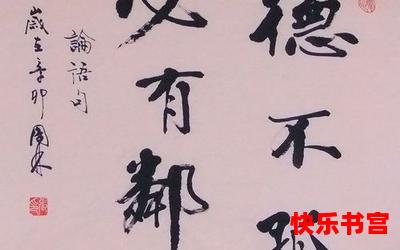 德不孤
必有鄰
論語句
歲在辛卯
快乐书宫